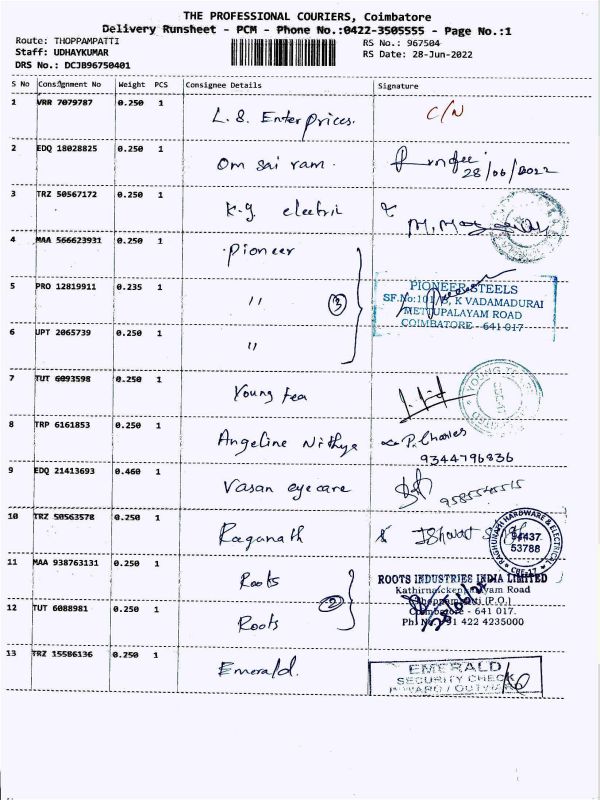 THE PROFESSIONAL COURIERS, Coimbatore
Delivery Runsheet - PCM - Phone No.:0422-3505555 - Page No.:1
Route: THOPPAMPATTI
RS No.: 967504
Staff: UDHAYKUMAR
RS Date: 28-Jun-2022
DRS No.: DCJB96750401
S No Consignment No Weight PCS Consignee Details Signature
1 VRR 7079787 0.250 1 L.S. Enterprices. C/N
2 EDQ 18028825 0.250 1 Om sai ram. 28/06/2022
3 TRZ 50567172 0.250 1 K.g. electric
4 MAA 566623931 0.250 1 pioneer
5 PRO 12819911 0.235 1 " 3
PIONEER STEELS
K VADAMADURAI
METTUPALAYAM ROAD
COIMBATORE - 641 017
6 UPT 2065739 0.250 1 "
7 TUT 6093598 0.250 1 Young tea
8 TRP 6161853 0.250 1 Angeline Nithya P. Charles
9344796836
9 EDQ 21413693 0.460 1 Vasan eyecare
10 TRZ 50563578 0.250 1 Raganath
RAGHUNATH HARDWARE & ELECTRICAL
94437
53788
CBE-17
11 MAA 938763131 0.250 1 Roots
ROOTS INDUSTRIES INDIA LIMITED
Kathirnaickenpalayam Road
Thoppampatti (P.O.)
Coimbatore - 641 017.
Ph No. 91 422 4235000
12 TUT 6088981 0.250 1 Roots 2
13 TRZ 15586136 0.250 1 Emerald.
EMERALD
SECURITY CHECK
INWARD / OUTWARD